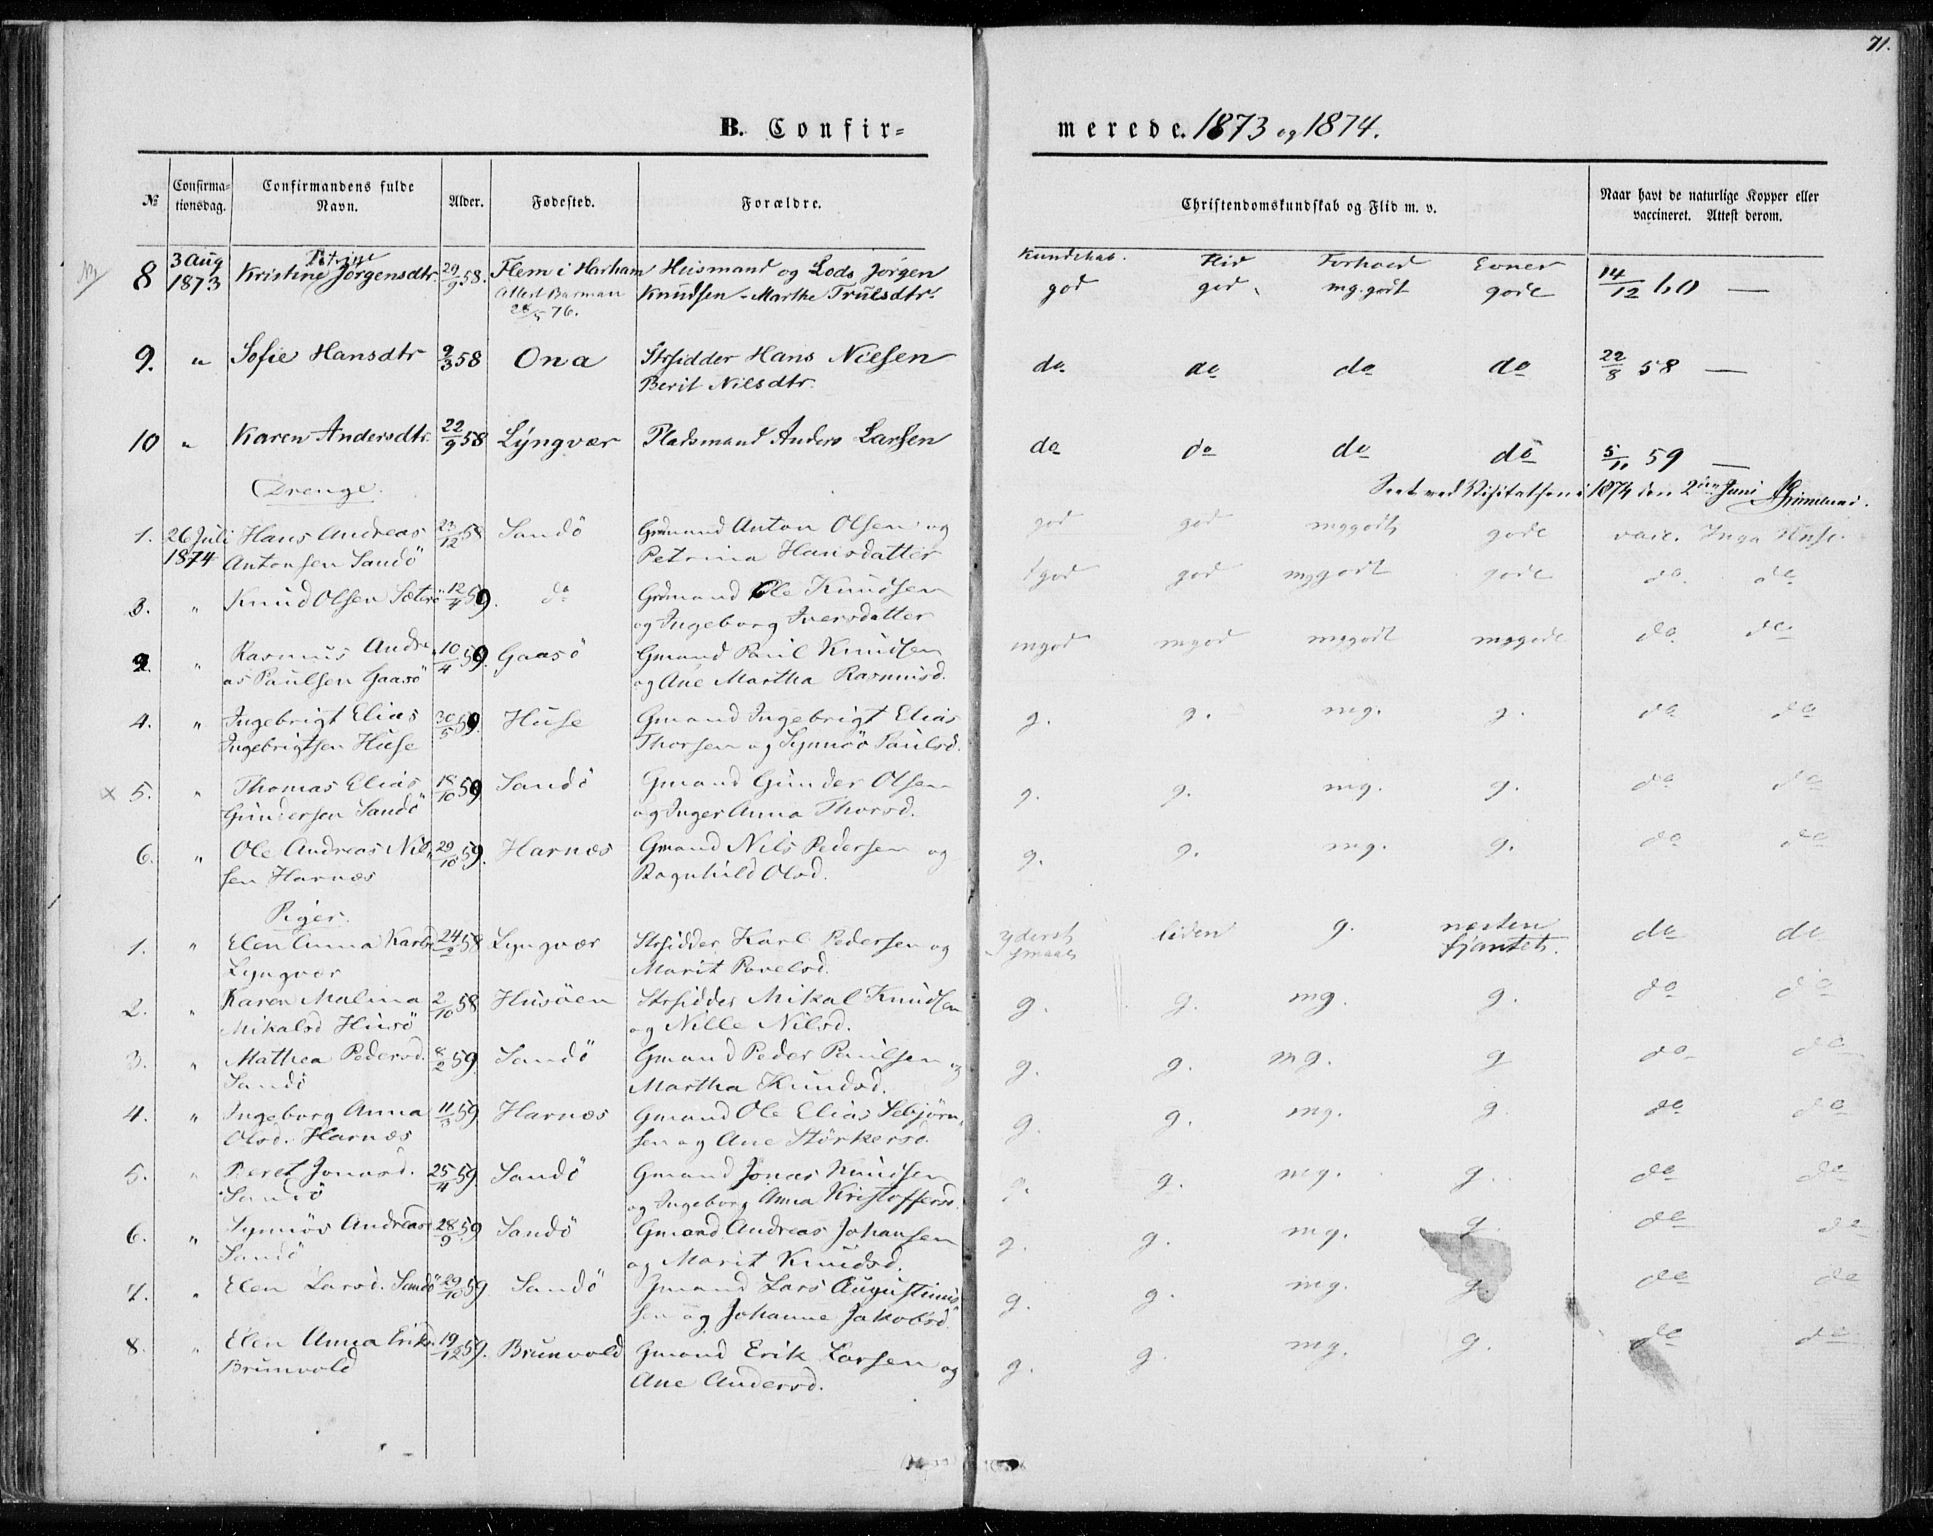 71.
B. Confir=
merede. 1873 og 1874.
№
Confirma=
tionsdag.
Confirmandens fulde
Navn.
Alder.
Fødested.
Forældre.
Christendomskundskab og Flid m. v.
Naar havt de naturlige Kopper eller
vaccineret. Attest derom.
Kundskab. Flid Forhold Evner
8 3 Aug 1873 Kristine Petrine Jørgensdtr. 29/9 58. Flem i Harham Huismand og Lods Jørgen god god mg. godt gode 14/12 60 —
Attest 76. Knudsen - Marthe Trulsdtr.
9. " Sofie Hansdtr 9/3 58 Ona Strsidder Hans Nielsen do do do do 22/8 58 —
Berit Nilsdtr.
10 " Karen Andersdtr. 22/9 58 Lyngvær Pladsmand Anders Larsen do do do do 5/11 59 —
Drenge.
Seet ved Visitatsen i 1874 den 2den Juni
1. 26 Juli Hans Andreas 23/12 58 Sandö Grdmand Anton Olsen og god god mggodt gode vacc. Inga Huse.
1874 Antonsen Sandö Petrina Hansdatter
3. " Knud Olsen 12/4 59. do Grdmand Ole Knudsen god god mggodt gode do. do
og Ingeborg Iversdatter
2. " Rasmus Andre 10/4 59. Gaasö Gmand Paul Knudsen mgod mgod mggodt mggode do. do
as Paulsen Gaasö og Ane Martha Rasmusd.
4. " Ingebrigt Elias 30/5 59. Huse Gmand Ingebrigt Elias g. g. mg. g. do do
Ingebrigtsen Huse Thorsen og Synnöv Paulsd.
× 5. " Thomas Elias 18/10 59. Sandö Gmand Gunder Olsen g. g. mg. g. do do
Gundersen Sandö og Inger Anna Thorsd.
6. " Ole Andreas Nil= 29/10 59. Harnæs Gmand Nils Pedersen og g. g. mg. g. do do
sen Harnæs Ragnhild Olsd.
Piger.
1. " Elen Anna Karlsd 24/2 58 Lyngvær Strsidder Karl Pedersen og yderst liden g. næsten do do
Lyngvær Marit Povelsd. fjantet.
2. " Karen Malina 2/10 58 Husöen Strsidder Mikal Knudsen g. g. mg. g. do do
Mikalsd Husö og Nille Nilsd.
3. " Mathea Pedersd. 8/2 59. Sandö Gmand Peder Paulsen og g. g. mg. g do do
Sandö Martha Knudsd.
4. " Ingeborg Anna 11/3 59. Harnæs Gmand Ole Elias Sebjörn= g. g. mg. g do do
Olsd. Harnæs sen og Ane Störkersd.
5. " Beret Jonasd. 25/4 59 Sandö Gmand Jonas Knudsen g. g. mg. g. do do
Sandö og Ingeborg Anna Kristoffersd.
6. " Synnöv Andreasd 28/9 59 Sandö Gmand Andreas Johansen g. g. mg. g. do do
Sandö og Marit Knudsd.
7. " Elen Larsd. Sandö 29/10 59 Sandö Gmand Lars Augustinus= g. g. mg. g. do do
sen og Johanne Jakobsd.
8. " Elen Anna Eriksd 19/12 59. Brunvold Gmand Erik Larsen og g. g. mg. g. do do
Brunvold Ane Andersd.